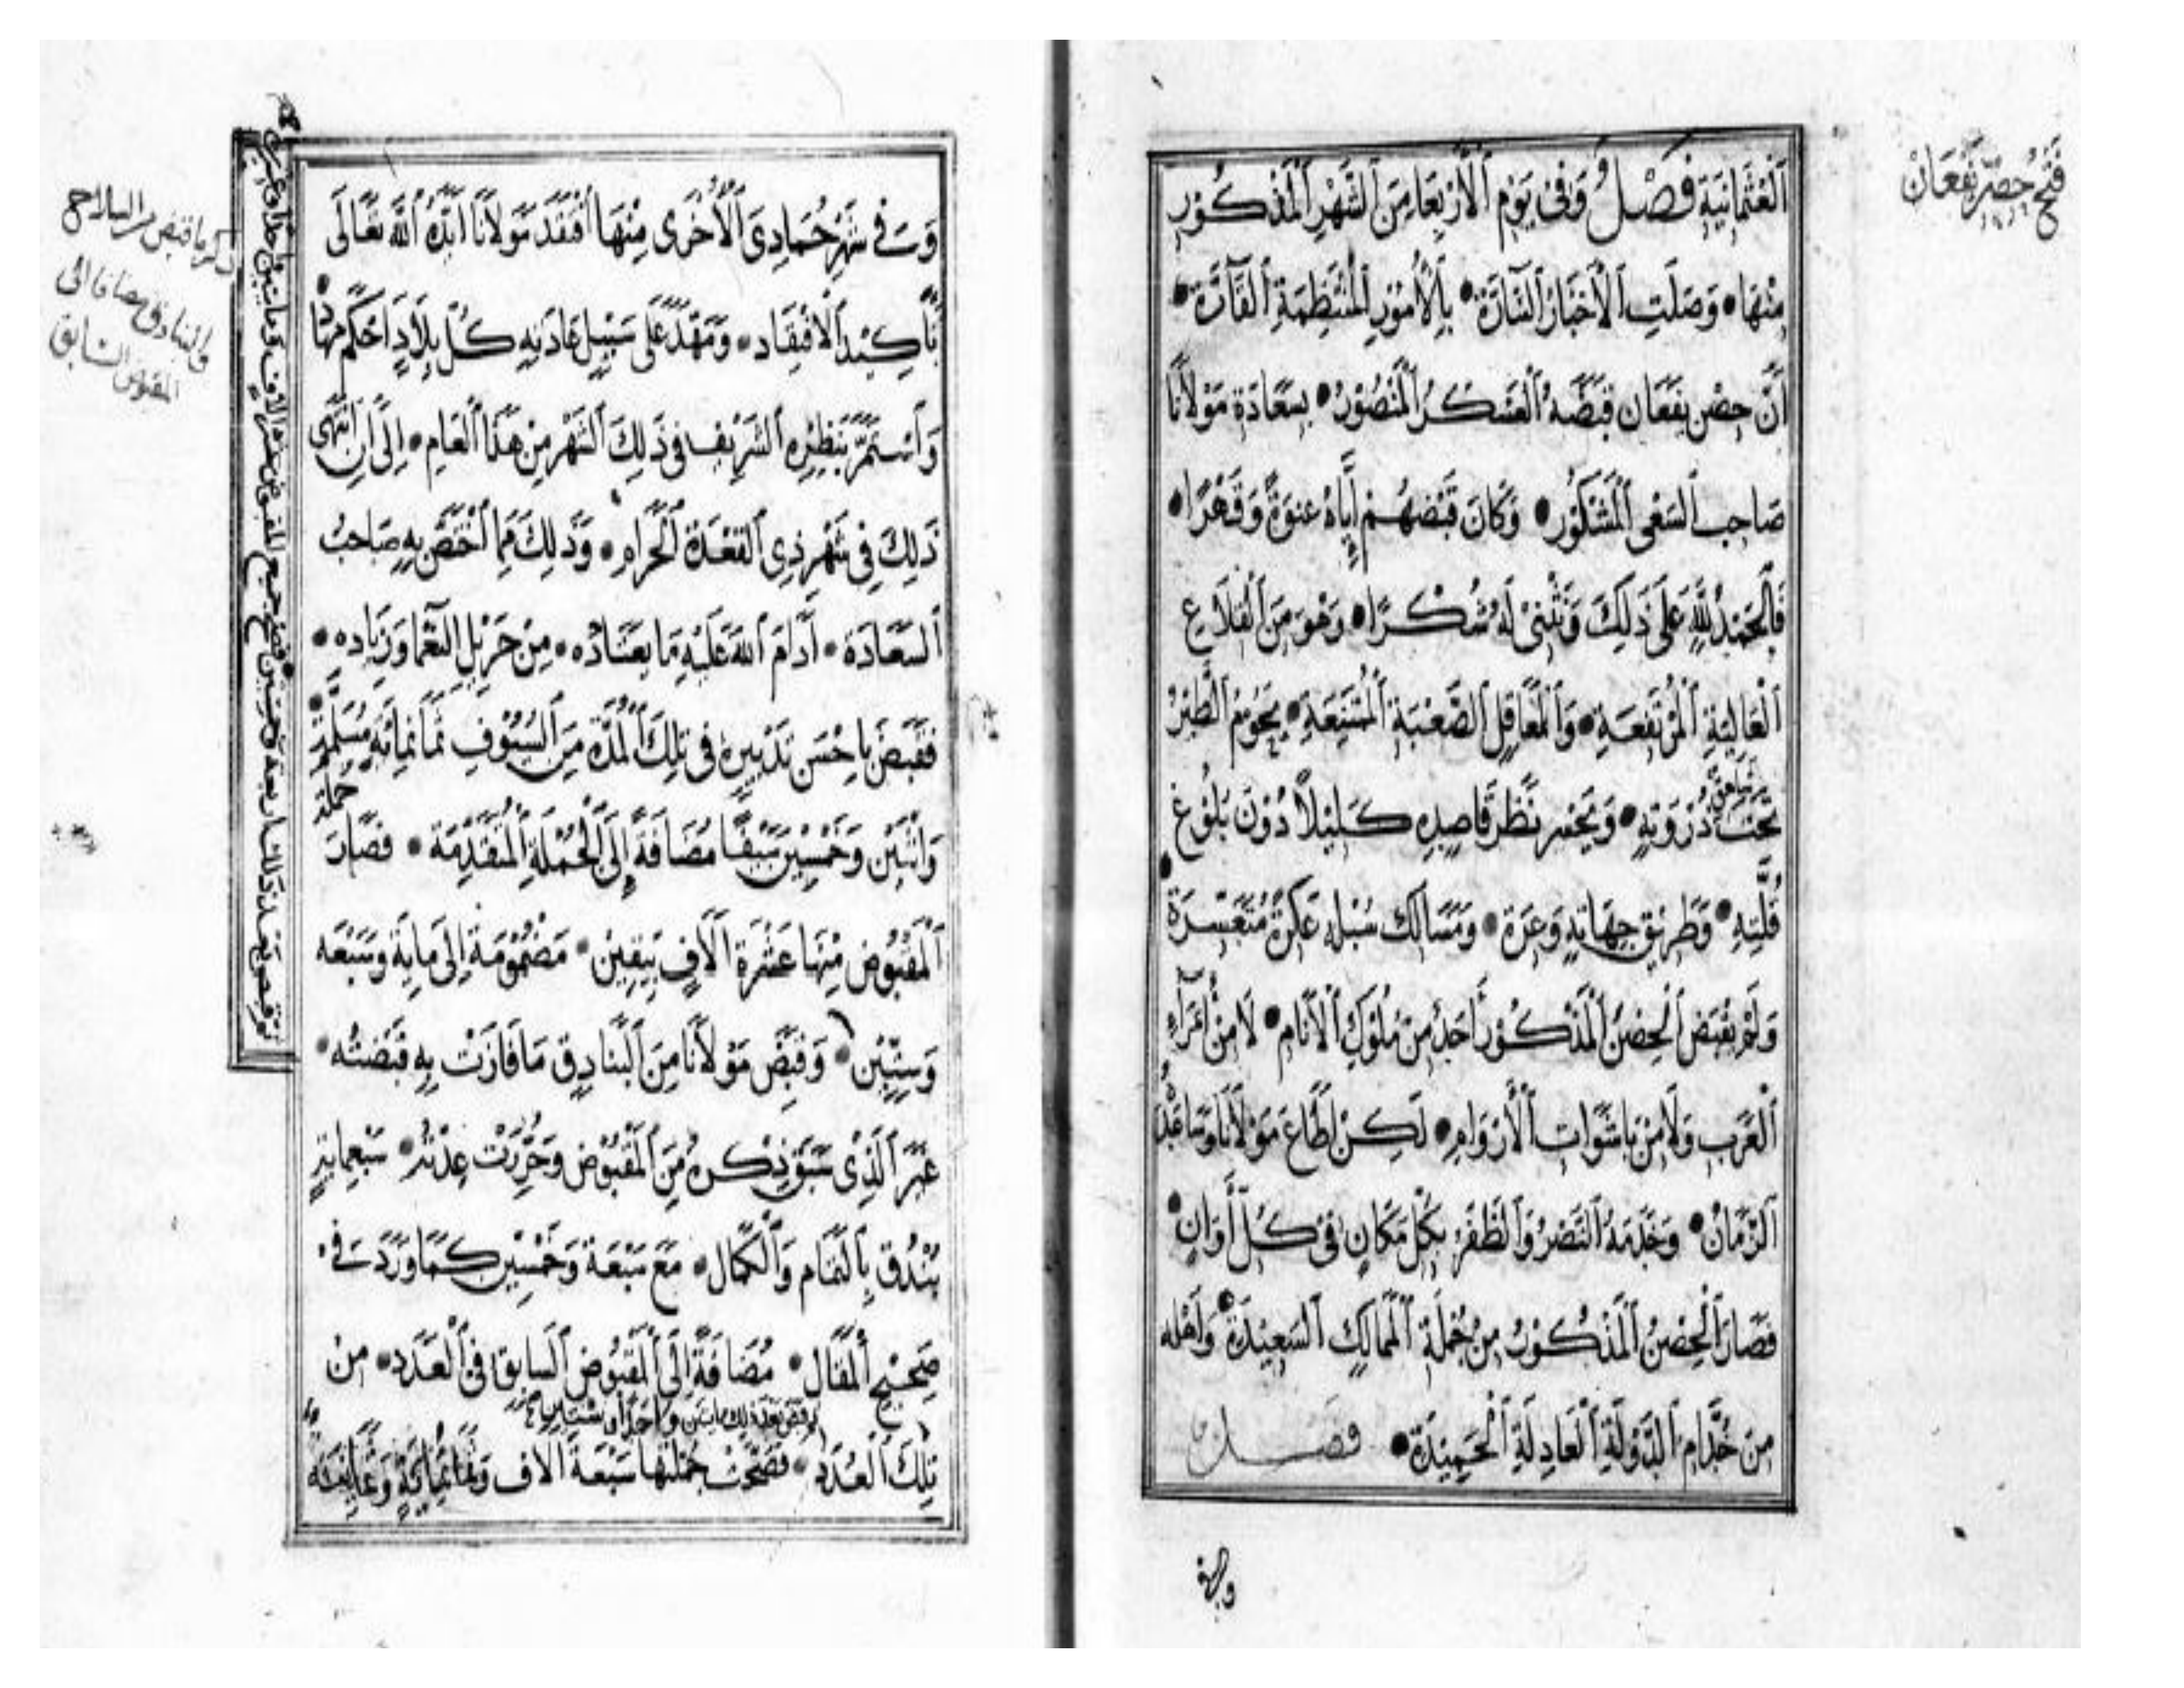 فتح حصن يفعان
العثمانية فصل وفى يوم الأربعا من الشهر المذكور
منها وصلت الأخبار السارة بالأمور المنتظمة القارة
أن حصن يفعان قبضه العسكر المنصور بسعادة مولانا
صاحب السعى المشكور وكان قبضهم إياه عنوة وقهرا
فالحمد لله على ذلك ونثنى له شكرا وهو من القلاع
العالية المرتفعة والمعاقل الصعبة الممتنعة يحوم الطير
تحت ذروته ويحسر نظر قاصده كليلا دون بلوغ
قلته وطريق جهاته وعرة ومسالك سبله عكرة متعسرة
ولم يقبض الحصن المذكور أحد من ملوك الأنام لا من أمراء
العرب ولا من باشوات الأروام لكن أطاع مولانا وساعده
الزمان وخدمه النصر والظفر بكل مكان فى كل أوان
فصار الحصن المذكور من جملة الممالك السعيدة وأهله
من خدام الدولة العادلة الحميدة فصل
وفى
وفي شهر جمادى الأخرى منها افتقد مولانا أيده الله تعالى
بأكيد الافتقاد ومهد على سبيل عادته كل بلاد أحكم مهادها
واستمر بنظره الشريف فى ذلك الشهر من هذا العام إلى أن انتهى
ذلك فى شهر ذى القعدة الحرام وذلك مما اختص به صاحب
السعادة أدام الله عليه ما يعتاده من جزيل النعما وزياده
فقبض باحسن تدبيره فى تلك المدة من السيوف ثمانمائة مسلمة
جملة
واثنين وخمسين سيفا مضافة إلى الجملة المتقدمة فصار
المقبوض منها عشرة آلاف بيقين مضمومة إلى ماية وسبعه
وستين وقبض مولانا من البنادق ما فازت به قبضته
غير الذى سبق ذكره من المقبوض وحررت عدته سبعماية
بندق بالتمام والكمال مع سبعة وخمسين كما ورد فى
صحيح المقال مضافة إلى المقبوض السابق فى العدد من
ثم قبض بعد ذلك مايتين واحدا وستين
تلك العدد فصحت جملتها سبعة آلاف وثمانماية وثمانية
ذكر ما قبض من السلاح
والبنادق مضافا الى
المقبوض السابق